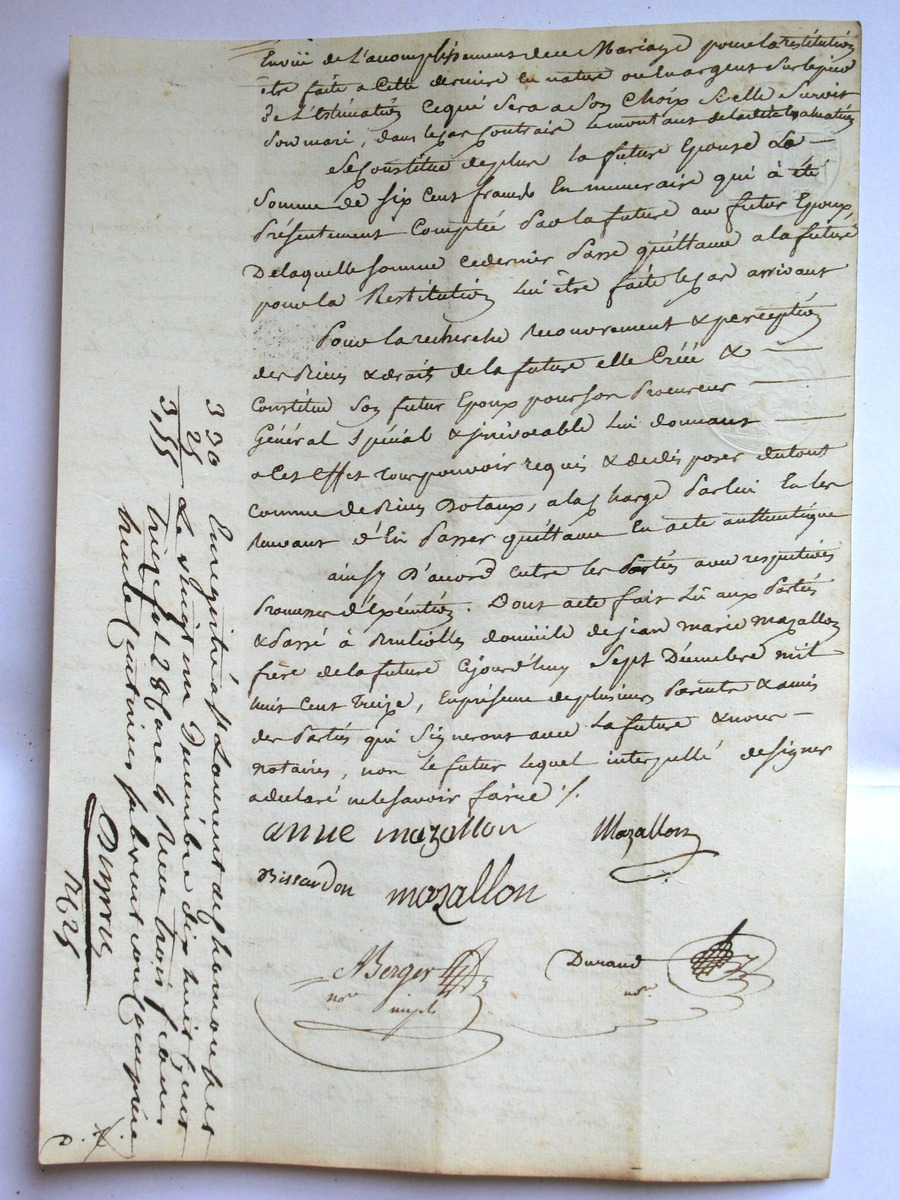 Envüe de L'acomplissement dece Mariage pour la restitution
être faite a Cette dernière En nature ou En argent Sur le pied
de L'Estimation Cequi sera a Son Choix Si elle Survit
Son mari, dans le cas Contraire le montant de ladite Evaluation
Se Constitue de plus la future Epouse La
Somme de Six Cent francs En numeraire qui à été
Présentement Comptée Par la future au futur Epoux,
De laquelle Somme ce dernier Passe quittance a la future
pour la Restitution Lui être faite le Cas arrivant
Pour la recherche Recouvrement & perception
des Biens & droits de la future elle Créé &
Constitue Son futur Epoux pour Son Procureur
Général Spécial & jrrévocable Lui donnant
a Cet effet tout pouvoir requis & de disposer du tout
Comme de Biens Dotaux, a la Charge Par lui En les
Recevant d'En Passer quittance En acte authentique
ainsy D'accord Entre les Parties avec respectives
Promesses d'Exécution. Dont acte fait Lû aux Parties
& Passé à domicile de jean marie mazallon
frère de la future Cejourd'huy Sept Décembre mil
huit Cent treize, En présence de plusieurs Parents & amis
des Parties qui Signeront avec La future & nous
notaires, non le futur lequel interpellé de signer
a declaré ne le Savoir faire ./.
anne mazallon Mazallon
Bissardon mazallon
ABerger Durand
nore impl nore
330
25
3,55
Enregistré à St Laurent de Chamousset
Le vingt un Décembre dix huit cent
treize fol 28 Care 4 Recu trois francs
trente Centimes Subvention Comprise
Duprré